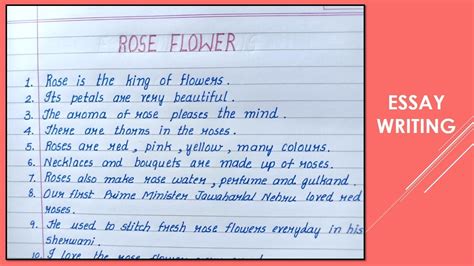 ROSE FLOWER
1. Rose is the king of flowers.
2. Its petals are very beautiful.
3. The aroma of rose pleases the mind.
4. There are thorns in the roses.
5. Roses are red, pink, yellow, many colours.
6. Necklaces and bouquets are made up of roses.
7. Roses also make rose water, perfume and gulkand.
8. Our first Prime Minister Jawaharlal Nehru loved red
roses.
9. He used to stitch fresh rose flowers everyday in his
sherwani.
10. I love the rose flower
ESSAY
WRITING